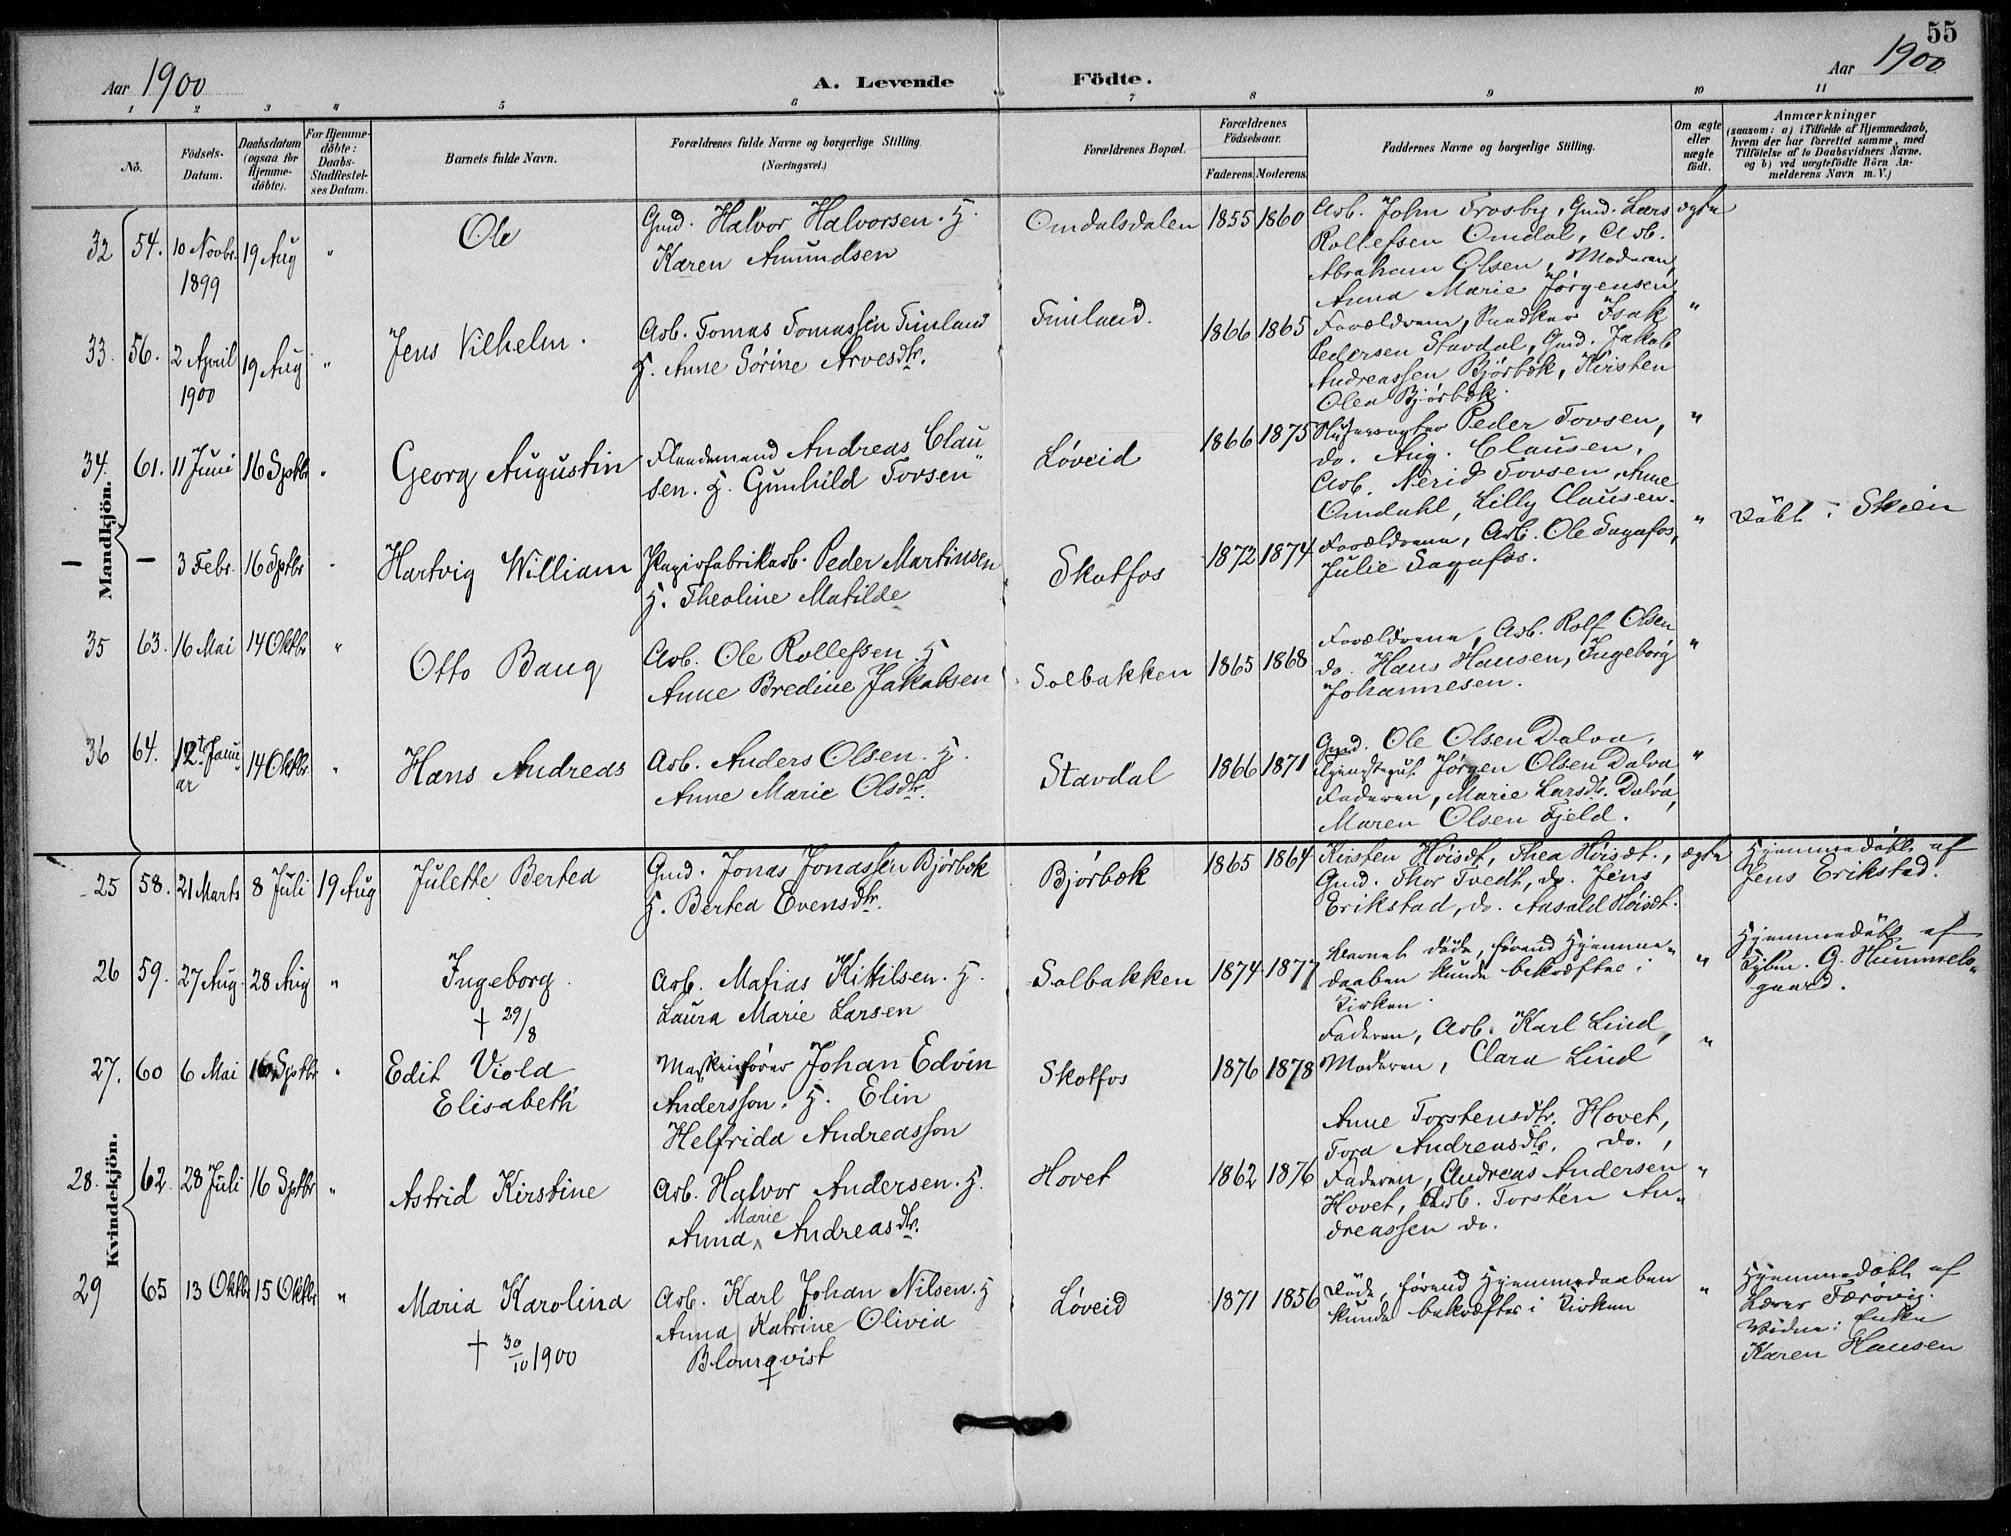 55
Aar 1900
A. Levende Födte.
Aar 1900
1 2 3 4 5 6 7 8 9 10 11
No.
Födsels-
Datum.
Daabsdatum
(ogsaa for
Hjemme-
döbte).
For Hjemme-
döbte:
Daabs-
Stadfæstel-
ses Datum.
Barnets fulde Navn.
Forældrenes fulde Navne og borgerlige Stilling.
(Næringsvei.)
Forældrenes Bopæl.
Forældrenes
Födselsaar.
Faderens. Moderens.
Faddernes Navne og borgerlige Stilling.
Om ægte
eller
uægte
födt.
Anmærkninger
(saasom: a) i Tilfælde af Hjemmedaab,
hvem der har forrettet samme, med
Tilföielse af to Daabsvidners Navne.
og b) ved uægtefödte Börn An-
melderens Navn m. V.)
Mandkjön.
32 54. 10 Novbr. 1899 19 Aug " Ole
Gmd. Halvor Halvorsen. H.
Karen Amundsen
Omdalsdalen 1855 1860
Arb. John Frosby, Gmd. Lars
Rollefsen Omdal, Arb.
Abraham Olsen, Moderen,
Anna Marie Jørgensen
ægte
33. 56. 2 April 1900 19 Aug " Jens Vilhelm.
Arb. Tomas Tomassen Finland
H. Anne Sørine Arvesdtr.
1866 1865
Forældrene, Isak
Pedersen Stavdal, Gmd. Jakob
Andreassen Bjørbæk, Kirsten
Olea Bjørbæk.
"
34. 61. 11 Juni 16 Sptbr " Georg Augustin
Andreas Clau
sen. H. Gunhild Tovsen
Løveid 1866 1875
Peder Tovsen,
do. Aug. Clausen,
Arb. Nerid Tovsen, Anne
Omdahl, Lilly Clausen.
"
– – 3 Febr. 16 Sptbr " Hartvig William
Papirfabrikarb. Peder Martinsen
H. Theoline Matilde
Skotfos 1872 1874
Forældrene, Arb. Ole Sagafos,
Julie Sagafos.
" Døbt i Skien
35 63. 16 Mai 14 Oktbr " Otto Baug
Arb. Ole Rollefsen H
Anne Bredine Jakobsen
Solbakken 1865 1868
Forældrene, Arb. Rolf Olsen
do. Hans Hansen, Ingeborg
Johannesen.
"
36 64. 12te Janu
ar 14 Oktbr. " Hans Andreas
Arb. Anders Olsen. H.
Anne Marie Olsdtr.
Stavdal 1866 1871
Gmd. Ole Olsen Dalva,
Jørgen Olsen Dalva
Faderen, Marie Larsdtr. Dalva,
Maren Olsen Fjeld.
"
Kvindekjön.
25 58. 21 Marts 8 Juli 19 Aug Julette Bertea
Gmd. Jonas Jonassen Bjørbæk
H. Bertea Evensdtr.
Bjørbæk 1865 1864
Kirsten Høisæt, Thea Høisæt.,
Gmd. Thor Tvedt, do. Jens
Erikstad, do. Høisæt.
ægte
Hjemmedøbt af
Jens Erikstad.
26 59. 27 Aug. 28 Aug " Ingeborg
† 29/8
Arb. Matias Kittilsen. H.
Laura Marie Larsen
Solbakken 1874 1877
Barnet døde, førend Hjemme
daaben kunde bekræftes i
Kirken.
"
Hjemmedøbt af
G. Hummels
gaard.
27. 60 6 Mai 16 Sptbr " Edit Viola
Elisabeth
Maskinfører Johan Edvin
Andersson. H. Elin
Helfrida Andreasson
Skotfos 1876 1878
Faderen, Arb. Karl Lind,
Moderen, Clara Lind
"
28. 62. 28 Juli 16 Sptbr " Astrid Kirstine
Arb. Halvor Andersen. H.
Anna Marie Andreasdtr.
Hovet 1862 1876
Anne Torstensdtr. Hovet,
Tora Andreasdtr. do.,
Faderen, Andreas Andersen
Hovet, Arb. Torsten An
dreassen do.
"
29 65 13 Oktbr 15 Oktbr " Maria Karolina
† 30/10 1900
Arb. Karl Johan Nilsen. H
Anna Katrine Olivia
Blomqvist
Løveid 1871 1856
Døde, førend Hjemmedaaben
kunde bekræftes i Kirken
"
Hjemmedøbt af
Lærer Færøvig.
Vidne: Enke
Karen Hansen